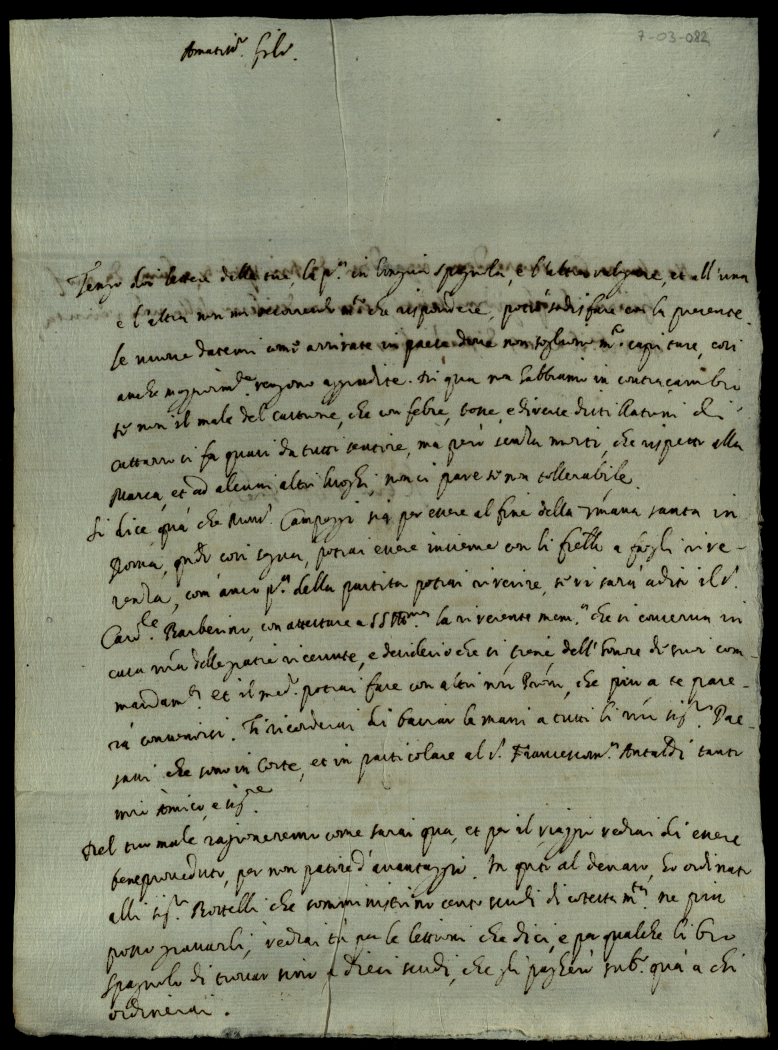 7-03-082
Amatis.mo figlo.
Tengo due lettere delle tue, la p.a in lingua spagnola, e l'altra volgare, et all'una
e l'altra non mi occorrendo che rispondere, potrò sodisfare con la presente.
le nuove datemi come arrivate in paese dove non sogliono capitare, così
anche vengono aggradite. di quà non habbiamo in contracambio
se non il male del castrone, che con febre, tosse, e diverse distillationi di
cattarro si fa quasi da tutti sentire, ma però senza morti, che rispetto alla
Marca, et ad alcuni altri luoghi, non ci pare se non tollerabile.
Si dice quà che Mons.r Campeggi sia per essere al fine della 7mana santa in
Roma, così segua, potrai essere insieme con li fr̃elli a fargli rive-
renza, com'anco p.a della partita potrai riverire, se vi sarà adito il S.r
Card.le Barberino, con attestare a la riverente mem.a che si conserva in
casa nr̃a delle gratie ricevute, e desiderio che si tiene dell'honore de suoi com-
mandam.ti et il med.o potrai fare con altri nr̃i Proñi, che più a te pare-
rà convenirsi. Ti ricorderai di baciar le mani a tutti li nr̃i sig.ri Pae-
sani che sono in Corte, et in particolare al S.r Francescom.a Antaldi tanto
mio Amico, e sig.re
Del tuo male ragioneremo come sarai quà, et per il viaggio vedrai di essere
ben proveduto, per non patire d'avantaggio. In quãto al denaro, ho ordinato
alli sig.ri Rostelli che somministrino cento scudi di cotesta m.ta ne più
posso gravarli, vedrai tù per le lettioni che dici, e per qualche libro
spagnolo di trovar sino a dieci scudi, che gli pagherò sub.o quà a chi
ordinerai.